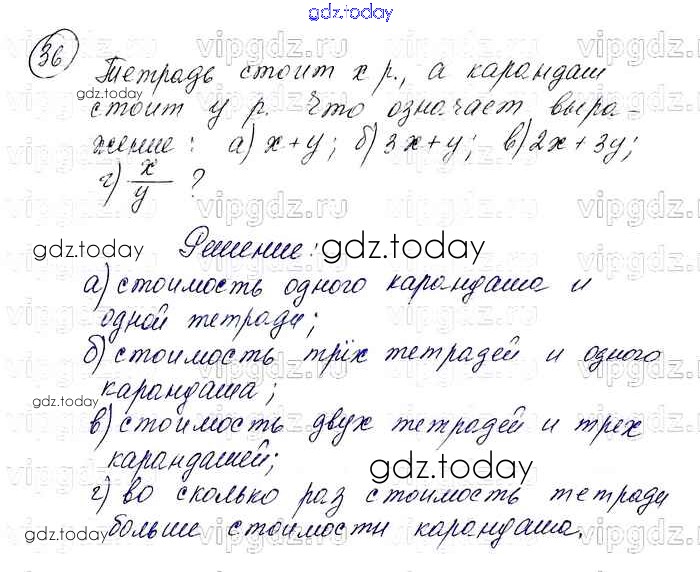 gdz.today
36
Тетрадь стоит х р., а карандаш
стоит у р. Что означает выра-
жение: а) х + у; б) 3х + у; в) 2х + 3у;
г) х/у ?
Решение:
gdz.today
gdz.today
а) стоимость одного карандаша и
одной тетради;
б) стоимость трёх тетрадей и одного
карандаша;
gdz.today
в) стоимость двух тетрадей и трех
карандашей;
gdz.today
г) во сколько раз стоимость тетради
больше стоимости карандаша.
gdz.today
vipgdz.ru
vipgdz.ru
vipgdz.ru